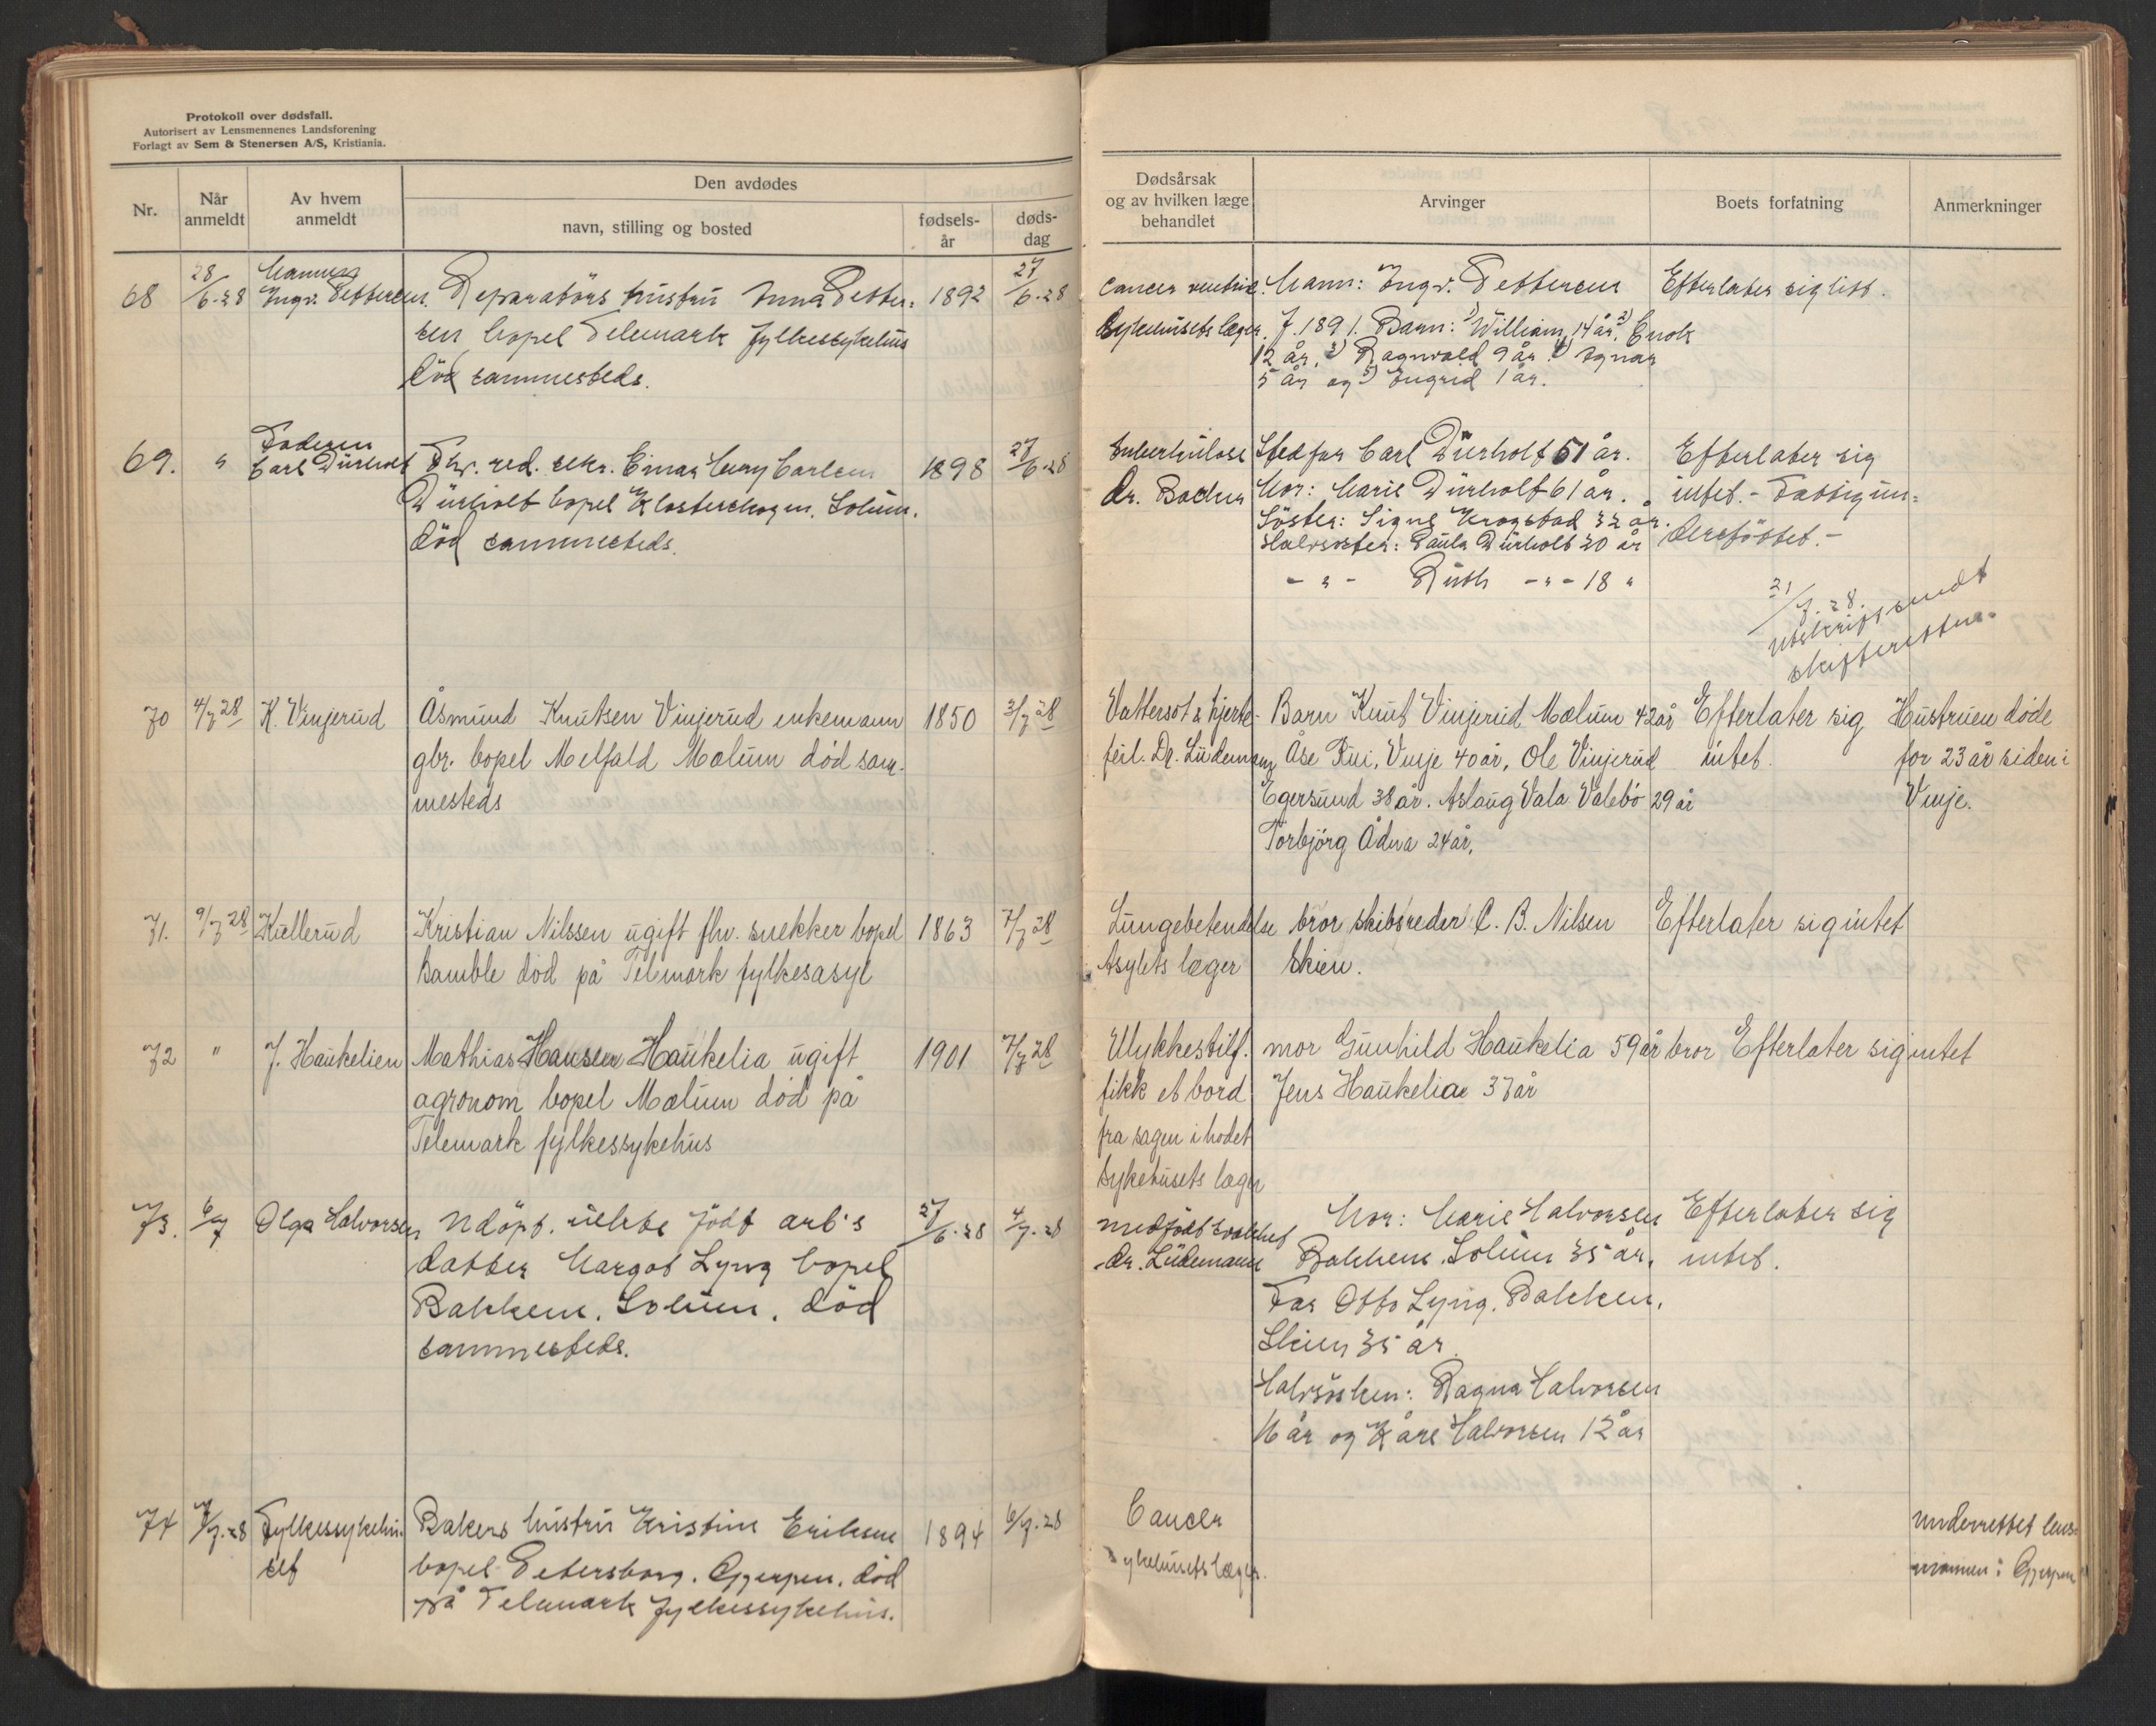 Protokoll over dødsfall.
Autorisert av Lensmennenes Landsforening
Forlagt av Sem & Stenersen A/S, Kristiania.
Nr.
Når anmeldt
Av hvem anmeldt
Den avdødes
navn, stilling og bosted
fødsels-år
døds-dag
Dødsårsak og av hvilken læge behandlet
Arvinger
Boets forfatning
Anmerkninger
68
28/6-28
Mannen
Ingv. Pettersen.
Reparatörs hustru Anna Petter-
sen bopel Telemark fylkessykehus
död sammesteds.
1892
27/6-28
Cancer ventric.
Sykehusets læger.
Mann: Ingv. Pettersen
f. 1891. Barn: 1) William, 14 år, 2) Enok
12 år, 3) Ragnvald 9 år 4) Agnar
5 år og 5) Ingrid 1 år.
Efterlater sig litt.
69.
"
Faderen
Carl Dürholt
Fhv. red. sekr. Einar Carlsen
Dürholt bopel Klosterskogen. Solum.
död sammesteds.
1898
27/6-28
Tuberkulose
Dr. Backer
Stedfar Carl Dürholt 51 år.
Mor: Marie Dürholt 61 år.
Söster: Signe Krogstad 32 år.
Halvsöster: Paula Dürholt 20 år
- " - Ruth - " - 18 "
Efterlater sig
intet. - Fattigun-
derstöttet. -
21/7.28.
utskrift sendt
skifteretten.
70
4/7 28
K. Vinjerud
Åsmund Knutsen Vinjerud enkemann
gbr. bopel Melfald Mælum död sam-
mesteds
1850
3/7 28
Vattersot & hjerte-
feil. Dr. Lüdemann
Barn Knut Vinjerud Mælum 42 år
Åse Rui, Vinje 40 år, Ole Vinjerud
Egersund 38 år. Aslaug Vala Valebö 29 år
Torbjörg Ådna 24 år.
Efterlater sig
intet.
Hustruen döde
for 23 år siden i
Vinje.
71.
9/7 28
Kullerud
Kristian Nilssen ugift fhv. snekker bopel
Bamble död på Telemark fylkesasyl
1863
7/7 28
Lungebetendelse
Asylets læger
bror skibsreder C. B. Nilsen
Skien.
Efterlater sig intet
72
"
J. Haukelien
Mathias Hansen Haukelia ugift
agronom bopel Mælum död på
Telemark fylkessykehus
1901
7/7 28
Ulykkestilf.
fikk et bord
fra sagen i hodet
Sykehusets læger
mor Gunhild Haukelia 59 år bror
Jens Haukelia 37 år
Efterlater sig intet
73.
6/7
Olga Halvorsen
Udöpt. uekte födt arb's
datter Margot Lyng bopel
Bakkene. Solum. död
sammesteds.
27/6-28
4/7.28
Medfödt svakhet
Dr. Lüdemann
Mor: Marie Halvorsen
Bakkene. Solum 35 år.
Far Otto Lyng. Bakken.
Skien 35 år.
Halvsösken: Ragna Halvorsen
16 år og Kåre Halvorsen 12 år
Efterlater sig
intet.
74
7/7.28
Fylkessykehu-
set
Bakers hustru Kristine Eriksen
bopel Petersborg. Gjerpen. död
på Telemark fylkessykehus.
1894
6/7.28
Cancer
Sykehusets læger.
underrettet lens-
mannen i Gjerpen